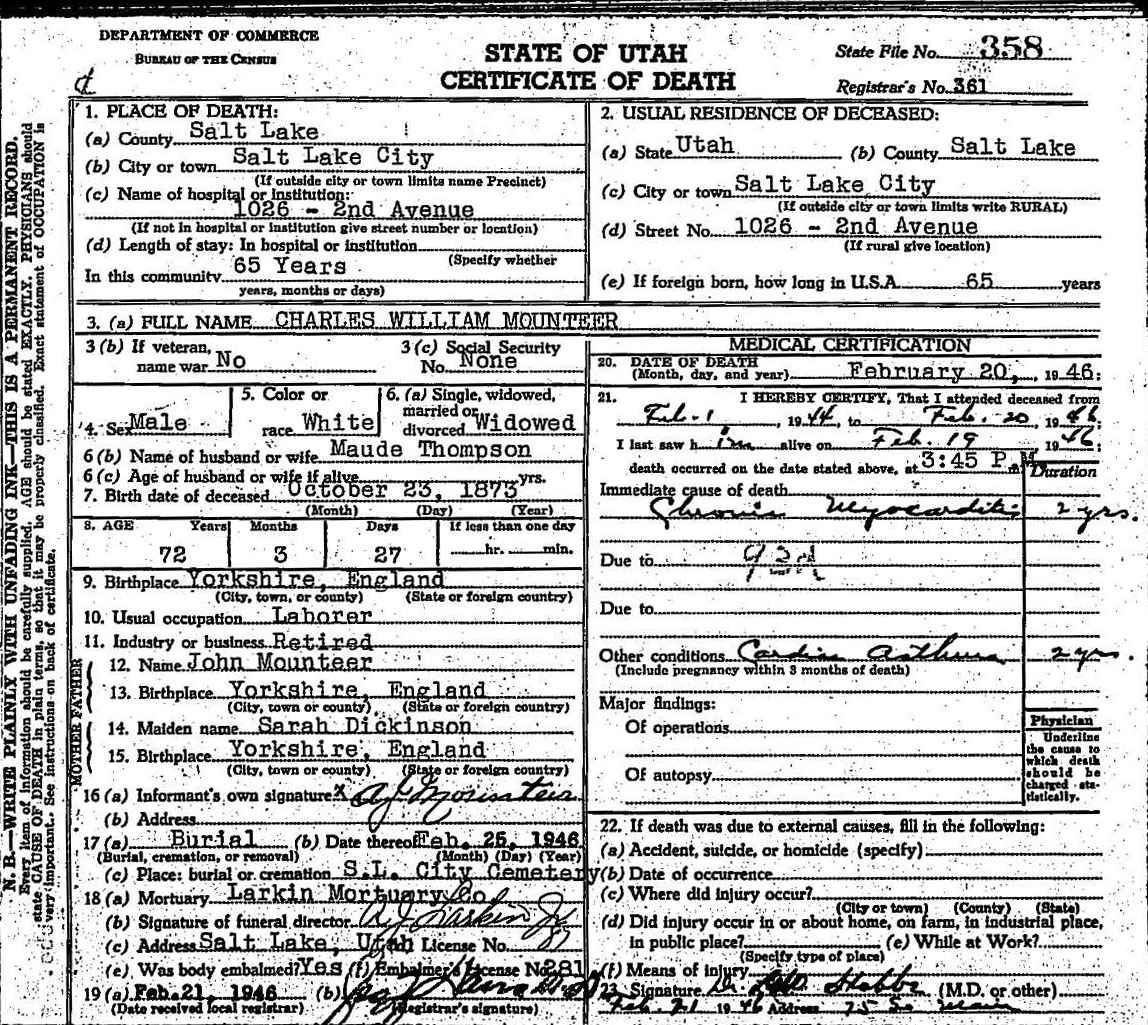 DEPARTMENT OF COMMERCE
BUREAU OF THE CENSUS
STATE OF UTAH
CERTIFICATE OF DEATH
State File No. 358
Registrar's No. 361
N. B.—WRITE PLAINLY WITH UNFADING INK—THIS IS A PERMANENT RECORD.
Every item of information should be carefully supplied. AGE should be stated EXACTLY. PHYSICIANS should
state CAUSE OF DEATH in plain terms, so that it may be properly classified. Exact statement of OCCUPATION is
very important. See instructions on back of certificate.
1. PLACE OF DEATH:
(a) County Salt Lake
(b) City or town Salt Lake City
(If outside city or town limits name Precinct)
(c) Name of hospital or institution:
1026 - 2nd Avenue
(If not in hospital or institution give street number or location)
(d) Length of stay: In hospital or institution
(Specify whether
In this community 65 Years
years, months or days)
2. USUAL RESIDENCE OF DECEASED:
(a) State Utah (b) County Salt Lake
(c) City or town Salt Lake City
(If outside city or town limits write RURAL)
(d) Street No. 1026 - 2nd Avenue
(If rural give location)
(e) If foreign born, how long in U.S.A. 65 years
3. (a) FULL NAME CHARLES WILLIAM MOUNTEER
3 (b) If veteran, name war No
3 (c) Social Security No. None
4. Sex Male
5. Color or race White
6. (a) Single, widowed, married or divorced Widowed
6 (b) Name of husband or wife Maude Thompson
6 (c) Age of husband or wife if alive yrs.
7. Birth date of deceased October 23, 1873
(Month) (Day) (Year)
8. AGE Years Months Days If less than one day
72 3 27 hr. min.
9. Birthplace Yorkshire, England
(City, town, or county) (State or foreign country)
10. Usual occupation Laborer
11. Industry or business Retired
FATHER
12. Name John Mounteer
13. Birthplace Yorkshire, England
(City, town or county) (State or foreign country)
MOTHER
14. Maiden name Sarah Dickinson
15. Birthplace Yorkshire, England
(City, town or county) (State or foreign country)
16 (a) Informant's own signature X A J Mounteer
(b) Address
17 (a) Burial (b) Date thereof Feb. 25, 1946
(Burial, cremation, or removal) (Month) (Day) (Year)
(c) Place: burial or cremation S.L. City Cemetery
18 (a) Mortuary Larkin Mortuary Co
(b) Signature of funeral director A J Larkin Jr
(c) Address Salt Lake, Utah License No. 87
(e) Was body embalmed? Yes (f) Embalmer's License No. 281
19 (a) Feb. 21, 1946 (b)
(Date received local registrar) (Registrar's signature)
MEDICAL CERTIFICATION
20. DATE OF DEATH
(Month, day, and year) February 20, 1946:
21. I HEREBY CERTIFY, That I attended deceased from
Feb. 1, 1944, to Feb. 20, 1946;
I last saw him alive on Feb. 19 1946;
death occurred on the date stated above, at 3:45 P.M
Duration
Immediate cause of death
Chronic Myocarditis 2 yrs.
Due to 93d
Due to
Other conditions Cardiac Asthma 2 yrs.
(Include pregnancy within 3 months of death)
Major findings:
Of operations
Of autopsy
Physician
Underline
the cause to
which death
should be
charged sta-
tistically.
22. If death was due to external causes, fill in the following:
(a) Accident, suicide, or homicide (specify)
(b) Date of occurrence
(c) Where did injury occur?
(City or town) (County) (State)
(d) Did injury occur in or about home, on farm, in industrial place,
in public place? (e) While at Work?
(Specify type of place)
(f) Means of injury
23. Signature Dr. (M.D. or other)
Feb 21 1946 Address 75 So Main